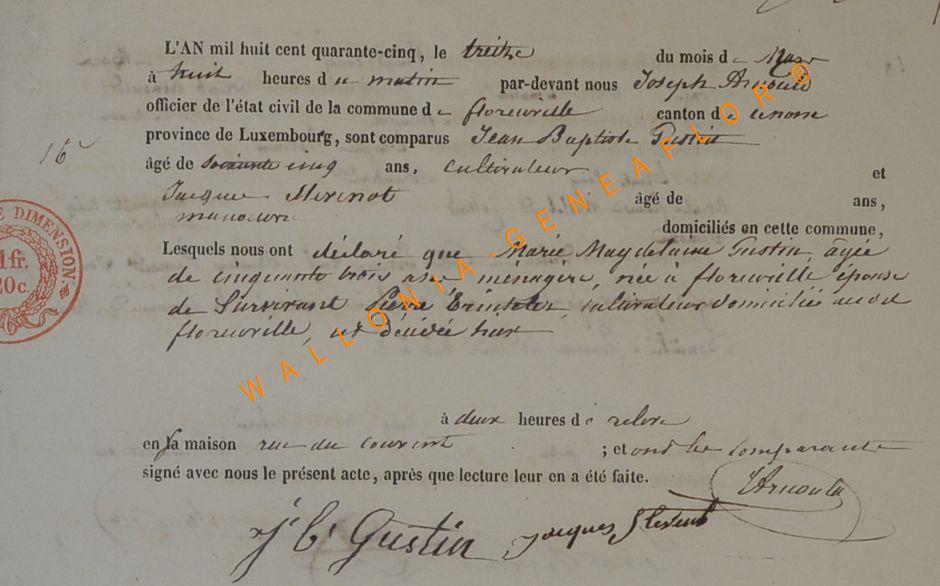 L'AN mil huit cent quarante-cinq, le treize du mois de Mars
à huit heures du matin par-devant nous Joseph Arnould
officier de l'état civil de la commune de florenville canton de
province de Luxembourg, sont comparus Jean Baptiste Gustin
16
âgé de soixante cinq ans, cultivateur et
Jacque âgé de ans,
manoeuvre
domiciliés en cette commune,
Lesquels nous ont déclaré que Marie Magdelaine Gustin âgée
de cinquante trois ans ménagère, née à florenville épouse
de Survivant Pierre cultivateur domiciliée audit
florenville, est décédée hier
à deux heures de relevé
en sa maison rue du couvent ; et ont les comparants
signé avec nous le présent acte, après que lecture leur en a été faite.
JArnould
J bt Gustin Jacques
E DIMENSION.
1 fr.
20c.
WALLONIA-GENEAFLOR®